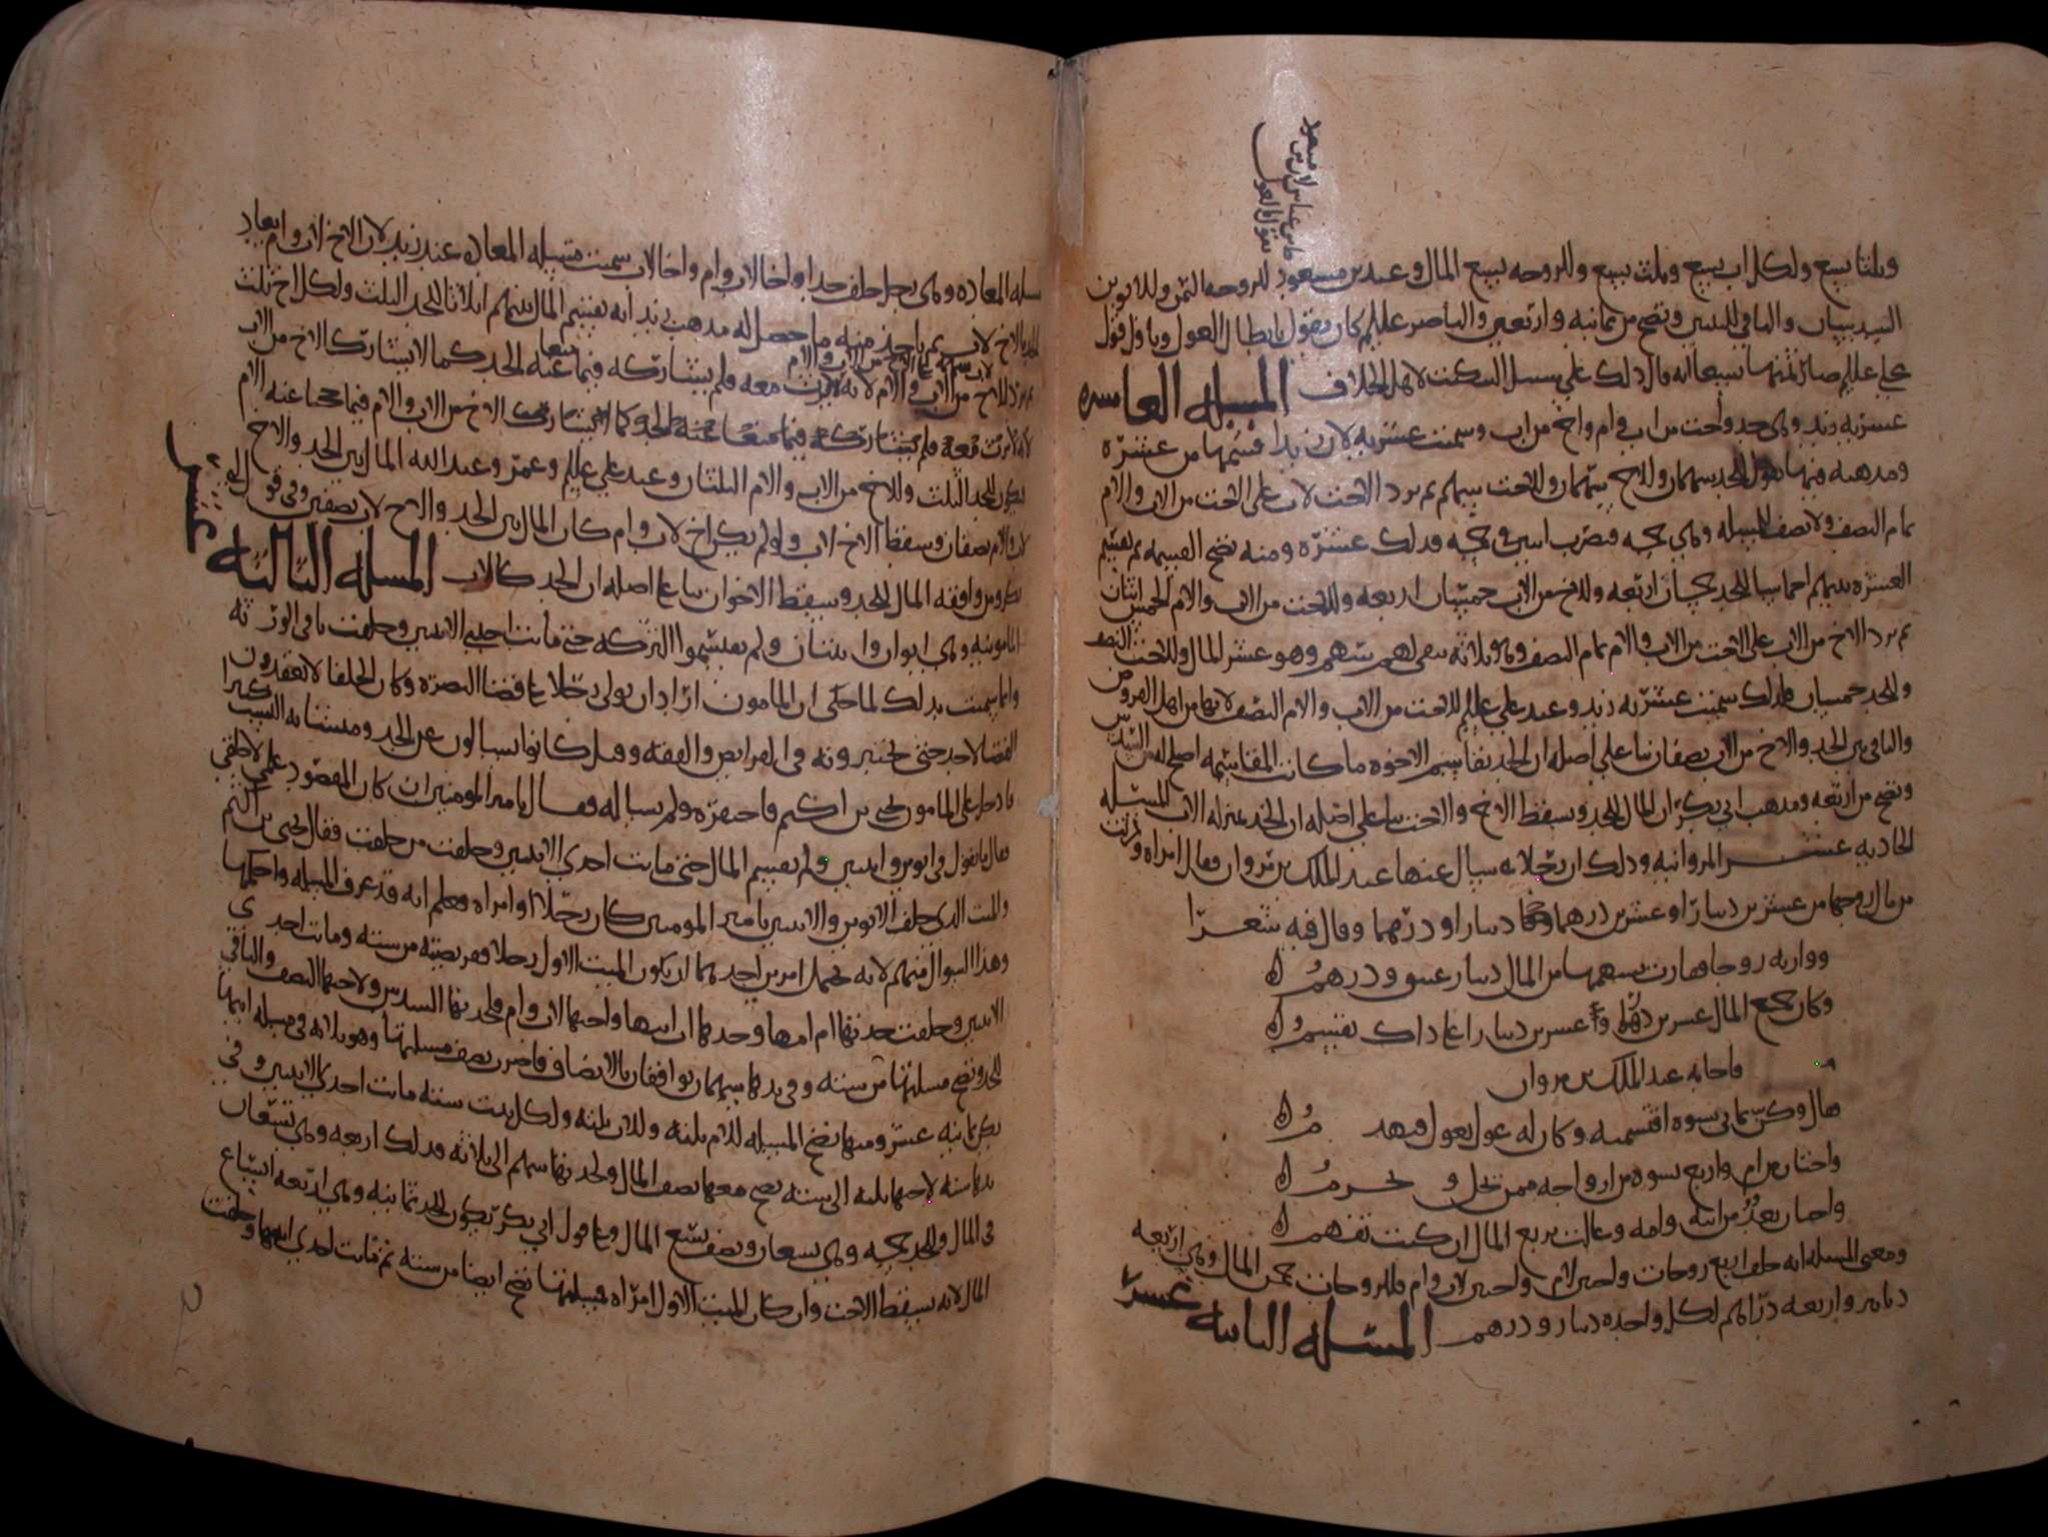 وثلثا سبع ولكل اب سبع وثلث سبع وللزوجه سبع المال وعند بن مسعود للزوجه الثمن وللابوين
السدسان والباقي للبنتين وتصح من ثمانيه واربعين والناصر عليلم كان يقول بابطال العول ويا ول قول
علي عليلم صار ثمنها تسعا انه قال ذلك على سبيل التبكيت لاهل الخلاف المسله العاشره
عشريه زيد وهي جد واخت من اب وام واخ من اب وسميت عشريه لان زيدا قسمها من عشره
ومذهبه فيها للجد سهمان وللاخ سهمان وللاخت سهم ثم يرد الاخ لاب على الاخت من الاب والام
تمام النصف ولا نصف للمسله وهي خمسه فتضرب اثنين في خمسه فذلك عشره ومنه تصح القسمه ثم تقسم
العشره بينهم اخماسا للجد خمسان اربعه وللاخ من الاب خمسان اربعه وللاخت من الاب والام الخمس اثنان
ثم يرد الاخ من الاب على الاخت من الاب والام تمام النصف وهو ثلاثه يبقى له سهم وهو عشر المال وللاخت النصف
وللجد خمسان فلذلك سميت عشريه زيد وعند علي عليلم للاخت من الاب والام النصف لانها من اهل الفروض
والباقي بين الجد والاخ من الاب نصفان بنا على اصله ان الجد يقاسم الاخوه ما كانت المقاسمه اصلح له من السدس
وتصح من اربعه ومذهب ابي بكر ان المال للجد وسقط الاخ والاخت بنا على اصله ان الجد بمنزله الاب المسله
الحاديه عشر المروانيه وذلك ان رجلا سال عنها عبد الملك بن مروان فقال امراه ورثت
من مال زوجها من عشرين دينارا وعشرين درهما دينارا ودرهما وقال فيه شعرا
ووارثه زوجا فصارت بسهمها من المال دينار عتيق ودرهم
وكان جميع المال عشرين درهما وعشرين دينارا غداك يقسم
فاجابه عبد الملك بن مروان
واختان من ام واربع نسوه من ازواجه
واختان بعد من ابيه وامه وعالت بربع المال ان كنت تفهم
ومعنى المسله انه خلف اربع زوجات واختين لام واختين لاب وام فللزوجات خمس المال وهي اربعه
دنانير واربعه دراهم لكل واحده دينار ودرهم المسله الثانيه عشر
مسله المعاده وهي رجل خلف جدا واخا لاب وام واخا لاب سميت مسله المعاده عند زيد لان الاخ لاب وام يعاد
الجد بالاخ لاب ثم ياخذ منه ما حصل له مذهب زيد انه يقسم المال بينهم اثلاثا للجد الثلث ولكل اخ ثلث
ثم يرد الاخ من الاب سهمه على الاخ من الاب والام لانه لا يرث معه فلم يشاركه فيما منعا عنه الجد كما لا يشارك الاخ من الاب
فيكون للجد الثلث وللاخ من الاب والام الثلثان وعند علي عليلم وعمر وعبد الله المال بين الجد والاخ
لاب والام نصفان وسقط الاخ لاب ولو لم يكن اخ لاب وام كان المال بين الجد والاخ لاب نصفين وفي قول ابي
بكر ومن وافقه المال للجد وسقط الاخوان بنا على اصله ان الجد كالاب المسله الثالثه عشر
المامونيه وهي ابوان وابنتان ولم يقتسموا التركه حتى ماتت احدى الابنتين وخلفت باقي الورثه
وانما سميت بذلك لما حكى ان المامون اراد ان يولي رجلا على قضا البصره وكان الخلفا لا يعقدون
القضا لاحد حتى يختبرونه في الفرايض والفقه وقبل كانوا يسالون عن الجد ومسائله السبب كبيرا
فادخل على المامون يحيى بن اكثم فاحتقره ولم يساله فقال يا امير المومنين ان كان المقصود علمي لا خلقي
فقال ما تقول في ابوين وابنتين ولم يقسم المال حتى ماتت احدى الابنتين وخلفت من خلفت فقال يحيى بن اكثم
والميت الذي خلف الابوين والابنتين يا امير المومنين كان رجلا او امراه فعلم انه قد عرف المسله واحكمها
وهذا السوال منهم لانه يحتمل امرين احدهما ان يكون الميت الاول رجلا ففريضته من سته وماتت احدى
الابنتين وخلفت جدتها ام ابيها وجدها اب ابيها واختها لاب وام فلجدتها السدس ولاختها النصف والباقي
للجد وتصح مسلتها من سته وفي يدها سهمان يوافقان بالانصاف فاضرب نصف مسلتها وهو ثلاثه في مسله ابيها
يكن ثمانيه عشر ومنها تصح المسله للام ثلثه وللاب ثلثه ولكل بنت سته ماتت احدى الابنتين وفي
يدها سته لاختها ثلثه الى سته يصح معها نصف المال ولجدتها سهم الى ثلاثه فذلك اربعه وهي تسعان
في المال وللجد خمسه وهي تسعان ونصف تسع المال وعلى قول ابي بكر يكون للجد ثمانيه وهي اربعه اتساع
المال لانه يسقط الاخت وان كان الميت الاول امراه فمسلتها تصح ايضا من سته ثم ماتت احدى ابنتيها وخلفت